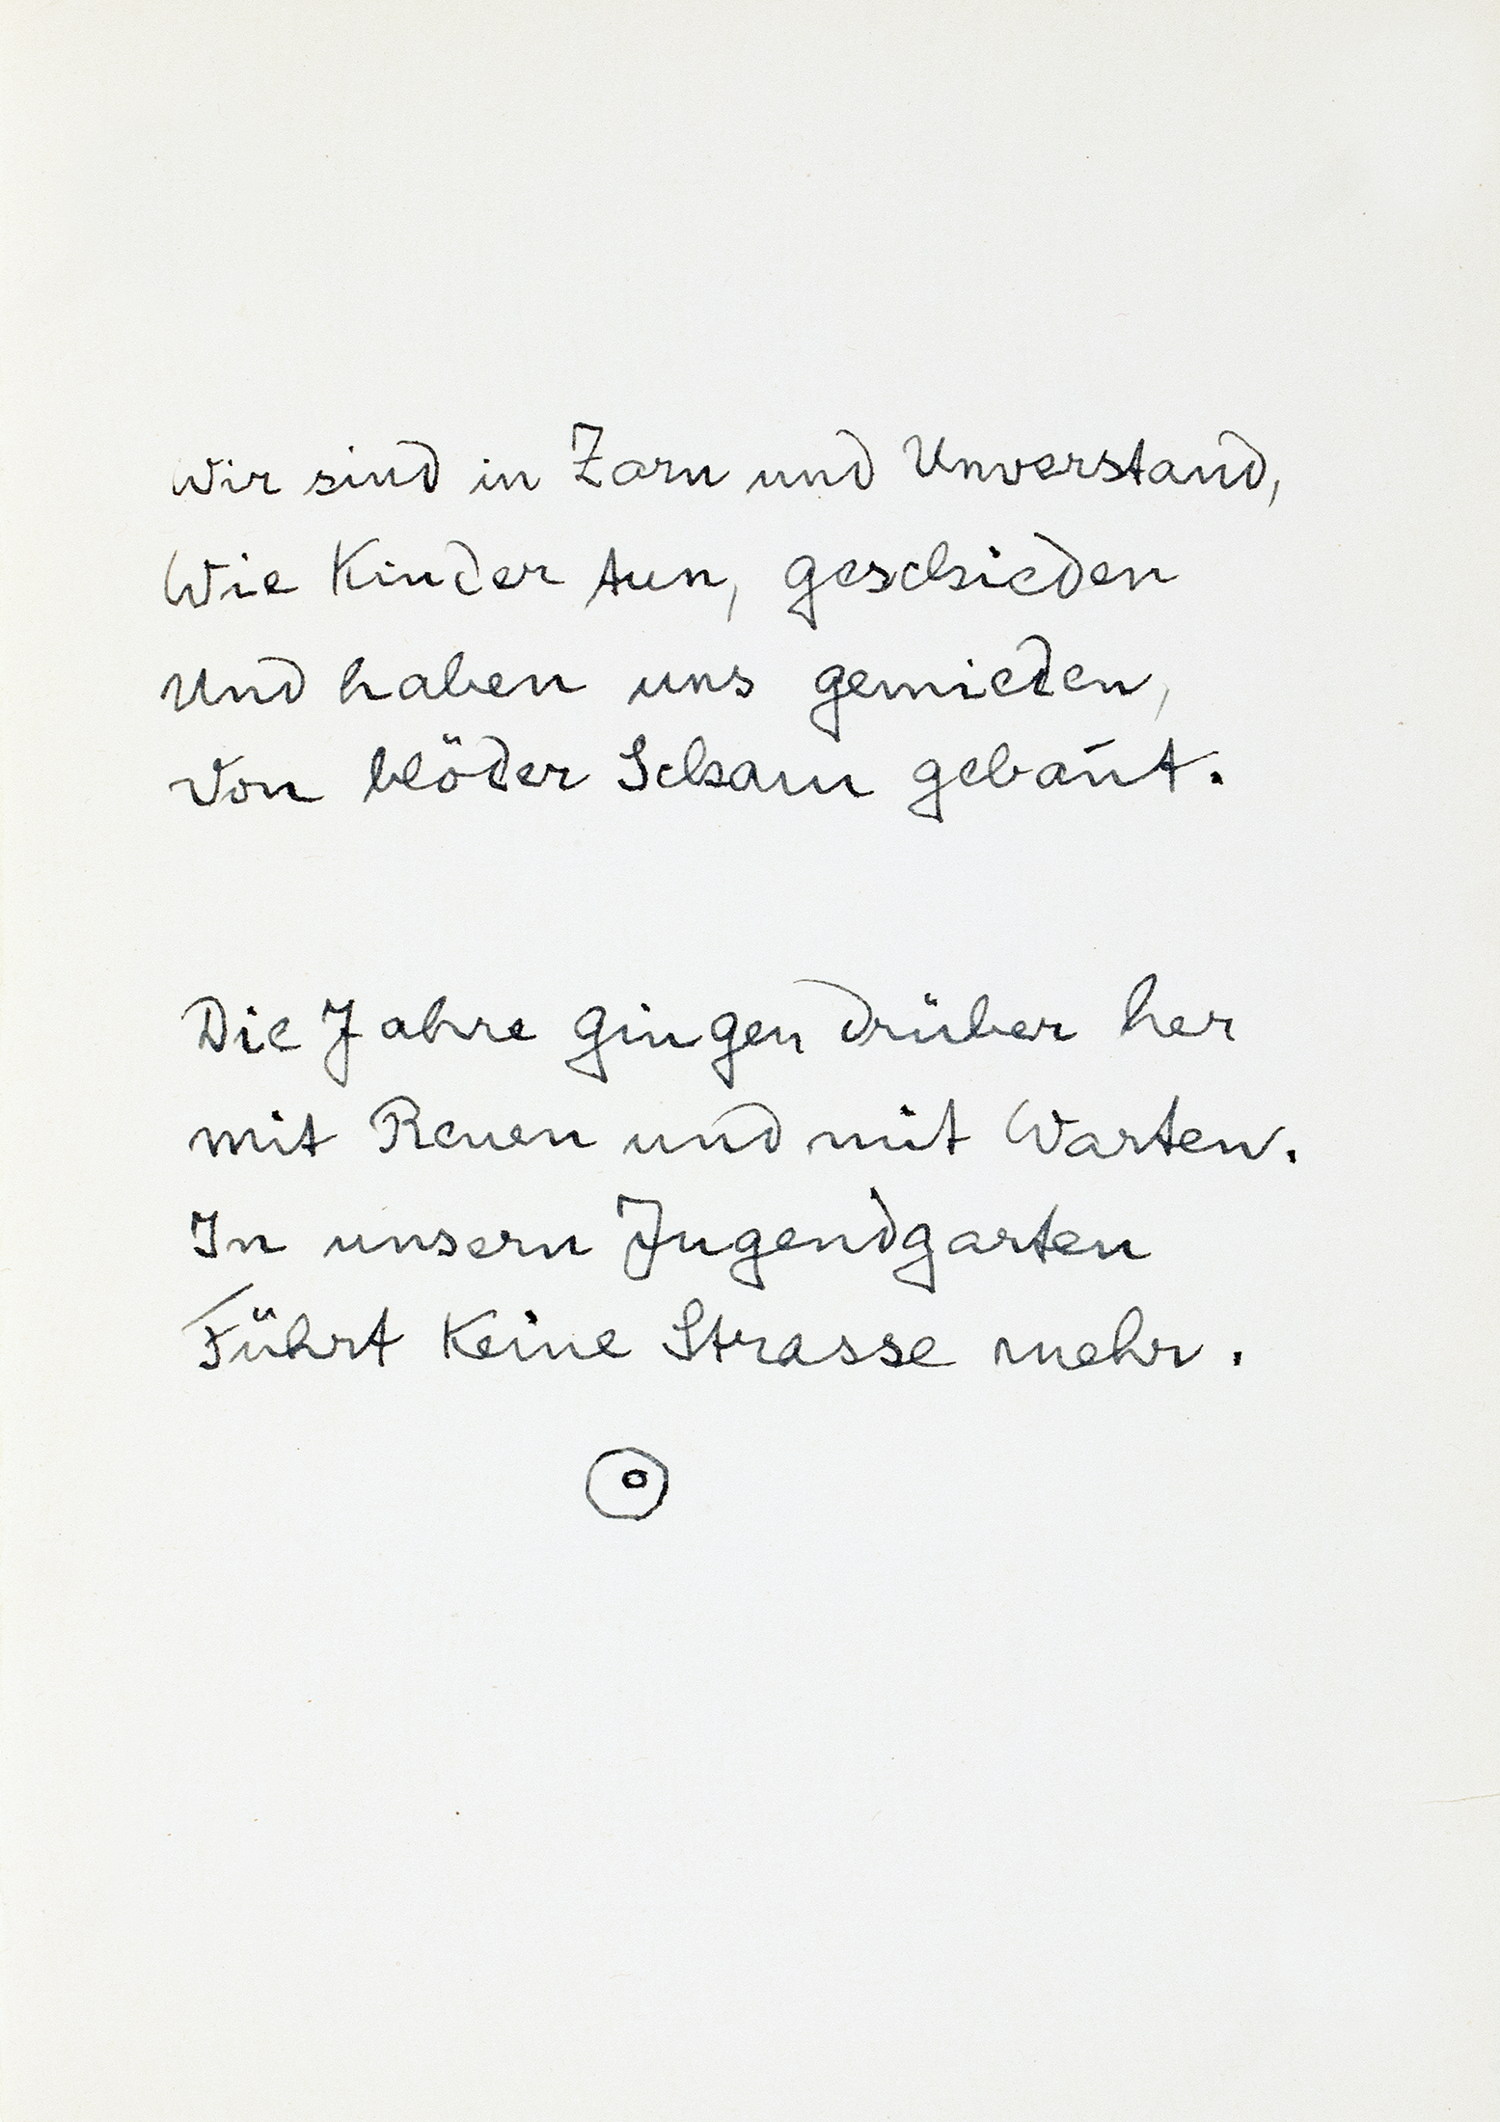 Wir sind in Zorn und Unverstand,
Wie Kinder tun, geschieden
Und haben uns gemieden,
Von blöder Scham gebannt.
Die Jahre gingen drüber her
mit Reuen und mit Warten.
In unsern Jugendgarten
Führt Keine Strasse mehr.